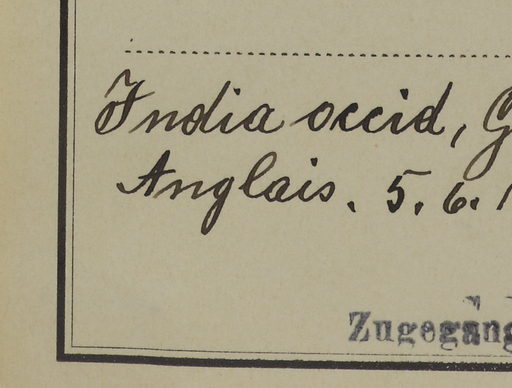 India occid, G
Anglais. 5. 6. 1
Zugegang